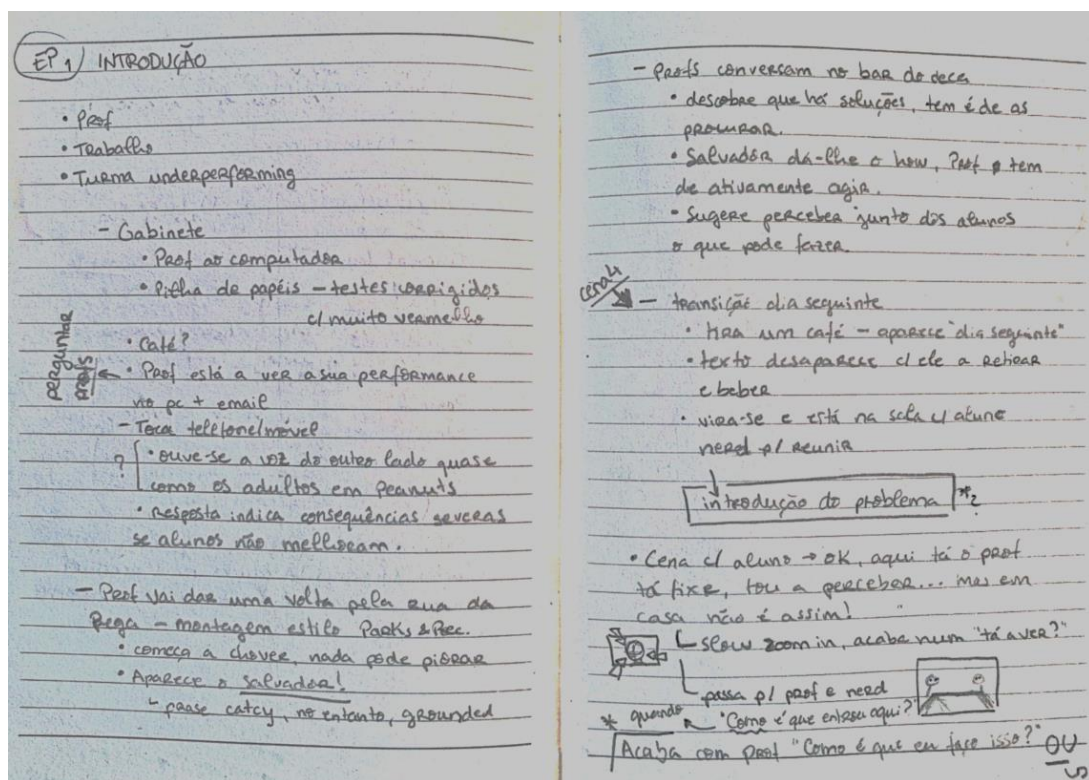 EP 1 / INTRODUÇÃO
• Prof
• Trabalho
• Turma underperforming
- Gabinete
• Prof ao computador
• Pilha de papéis - testes corrigidos
c/ muito vermelho
• Café?
perguntar
profs
• Prof está a ver a sua performance
no pc + email
- Toca telefone/móvel
? • ouve-se a voz do outro lado quase
como os adultos em Peanuts
• resposta indica consequências severas
se alunos não melhoram.
- Prof vai dar uma volta pela rua da
Pega - montagem estilo Parks & Rec.
• começa a chover, nada pode piorar
• Aparece o salvador!
frase catcy, no entanto, grounded
- Profs conversam no bar do deca
• descobre que há soluções, tem é de as
procurar.
• Salvador dá-lhe o how, Prof tem
de ativamente agir.
• Sugere perceber junto dos alunos
o que pode fazer.
cena 4
- transição dia seguinte
• tira um café - aparece "dia seguinte"
• texto desaparece c/ ele a retirar
e beber
• vira-se e está na sala c/ aluno
nerd p/ reunir
introdução do problema *2
• Cena c/ aluno → ok, aqui tá o prof
tá fixe, tou a perceber... mas em
casa não é assim!
slow zoom in, acaba num "tá a ver?"
passa p/ prof e nerd
* quando "Como é que entrou aqui?"
Acaba com prof "Como é que eu faço isso?" OU